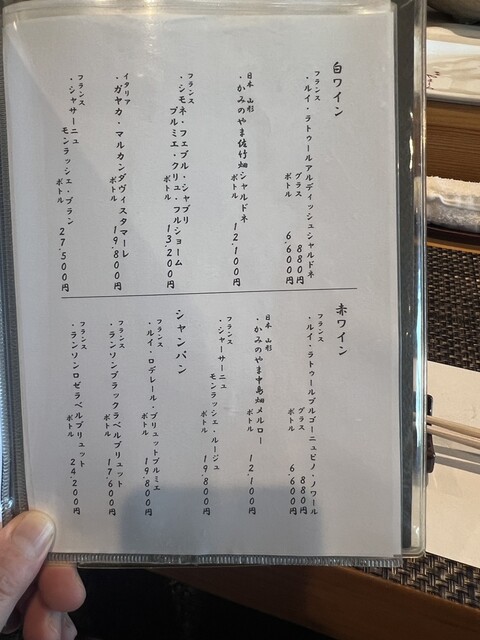 白ワイン
フランス
・ルイ・ラトゥールアルディッシュシャルドネ
グラス 880円
ボトル 6,600円
日本 山形
・かみのやま佐竹畑シャルドネ
ボトル 12,100円
フランス
・シモネ・フェブル・シャブリ
プルミエ・クリュ・フルショーム
ボトル 13,200円
イタリア
・ガヤカ・マルカンダヴィスタマーレ
ボトル 19,800円
フランス
・シャサーニュ
モンラッシェ・ブラン
ボトル 27,500円
赤ワイン
フランス
・ルイ・ラトゥールブルゴーニュピノ・ノワール
グラス 880円
ボトル 6,600円
日本 山形
・かみのやま中島畑メルロー
ボトル 12,100円
フランス
・シャーサーニュ
モンラッシェ・ルージュ
ボトル 19,800円
シャンパン
フランス
・ルイ・ロデレール・ブリュットプルミエ
ボトル 19,800円
フランス
・ランソンブラックラベルブリュット
ボトル 17,600円
フランス
・ランソンロゼラベルブリュット
ボトル 24,200円